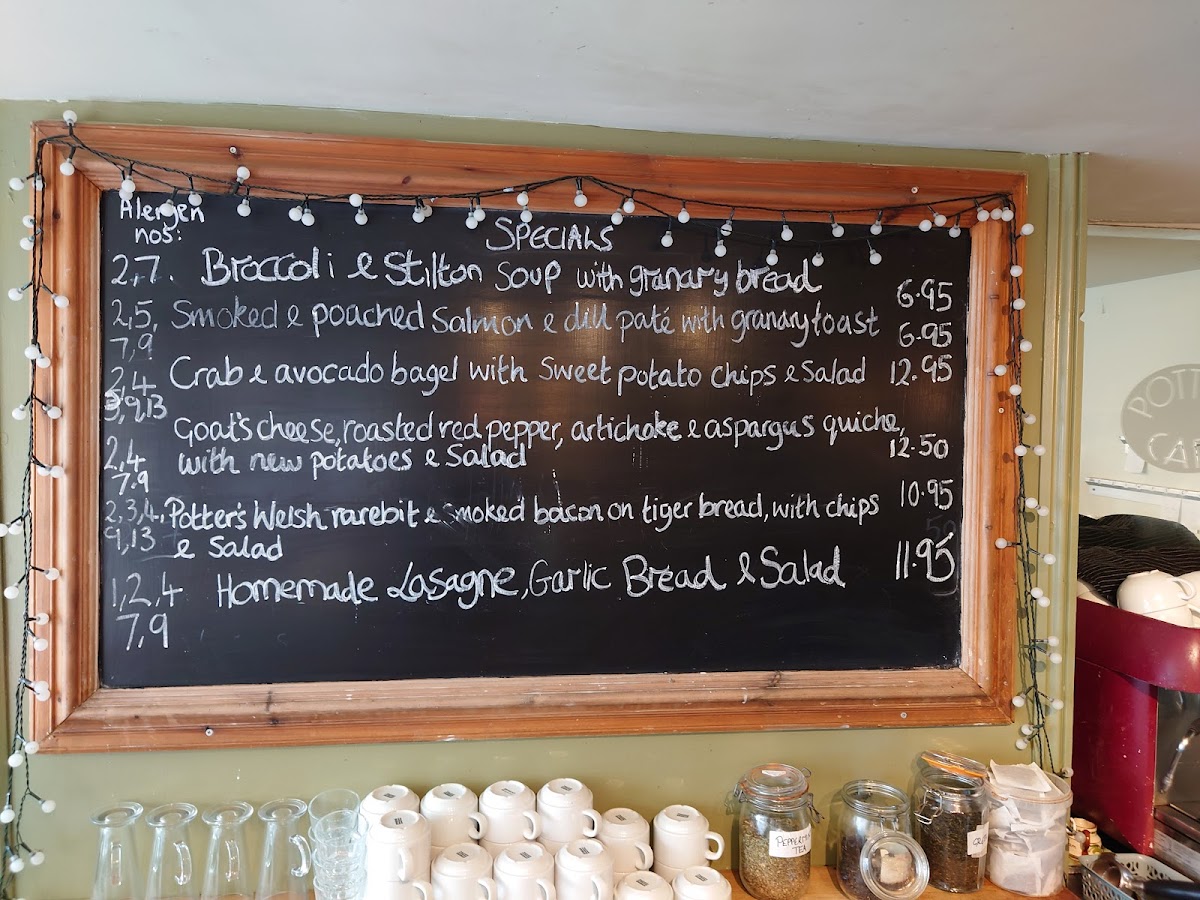 Alergen
nos:
SPECIALS
2,7. Broccoli & Stilton Soup with granary bread 6.95
2,5, Smoked & poached Salmon & dill paté with granary toast 6.95
7,9
2,4 Crab & avocado bagel with Sweet potato chips & Salad 12.95
3,9,13
Goat's cheese, roasted red pepper, artichoke & aspargus quiche,
2,4 with new potatoes & Salad 12.50
7.9
2,3,4, Potter's Welsh rarebit & smoked bacon on tiger bread, with chips 10.95
9,13 & Salad
1,2,4 Homemade Lasagne, Garlic Bread & Salad 11.95
7,9
POTT
CAF
PEPPERM
TEA